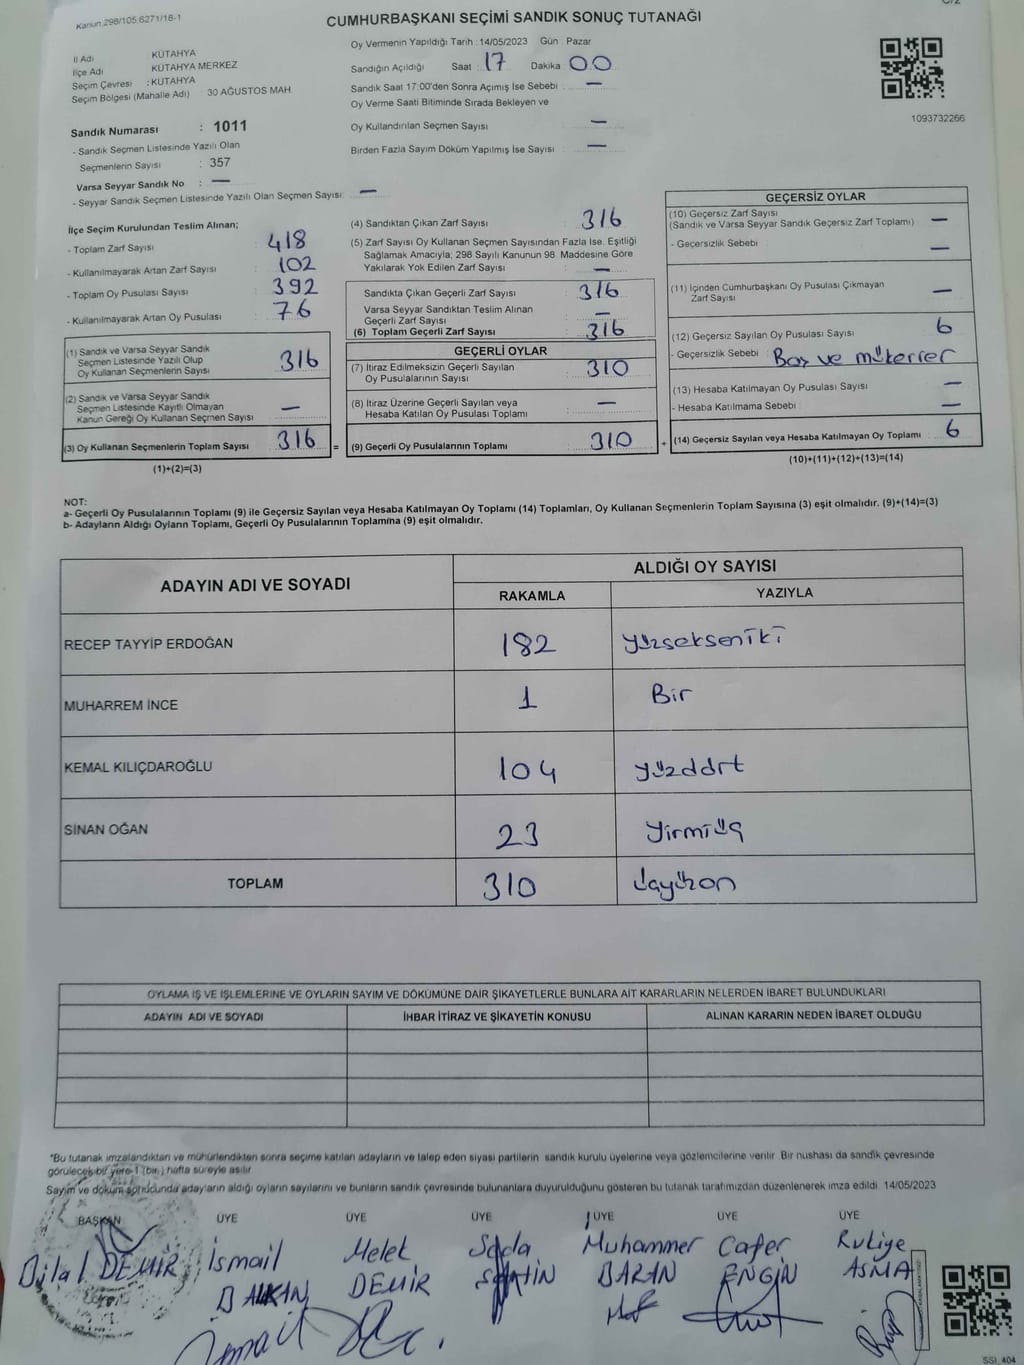 Kanun:298/105.6271/18-1
CUMHURBAŞKANI SEÇİMİ SANDIK SONUÇ TUTANAĞI
İl Adı KÜTAHYA
İlçe Adı KÜTAHYA MERKEZ
Seçim Çevresi : KÜTAHYA
Seçim Bölgesi (Mahalle Adı) 30 AĞUSTOS MAH
Sandık Numarası : 1011
- Sandık Seçmen Listesinde Yazılı Olan
Seçmenlerin Sayısı : 357
Varsa Seyyar Sandık No : —
- Seyyar Sandık Seçmen Listesinde Yazılı Olan Seçmen Sayısı: —
Oy Vermenin Yapıldığı Tarih :14/05/2023 Gün Pazar
Sandığın Açıldığı Saat : 17 Dakika 00
Sandık Saat 17:00'den Sonra Açımış İse Sebebi : —
Oy Verme Saati Bitiminde Sırada Bekleyen ve
Oy Kullandırılan Seçmen Sayısı —
Birden Fazla Sayım Döküm Yapılmış İse Sayısı : —
1093732266
İlçe Seçim Kurulundan Teslim Alınan;
- Toplam Zarf Sayısı : 418
- Kullanılmayarak Artan Zarf Sayısı : 102
- Toplam Oy Pusulası Sayısı : 392
- Kullanılmayarak Artan Oy Pusulası : 76
(1) Sandık ve Varsa Seyyar Sandık
Seçmen Listesinde Yazılı Olup
Oy Kullanan Seçmenlerin Sayısı : 316
(2) Sandık ve Varsa Seyyar Sandık
Seçmen Listesinde Kayıtlı Olmayan
Kanun Gereği Oy Kullanan Seçmen Sayısı : —
(3) Oy Kullanan Seçmenlerin Toplam Sayısı : 316 =
(1)+(2)=(3)
(4) Sandıktan Çıkan Zarf Sayısı : 316
(5) Zarf Sayısı Oy Kullanan Seçmen Sayısından Fazla İse. Eşitliği
Sağlamak Amacıyla; 298 Sayılı Kanunun 98. Maddesine Göre
Yakılarak Yok Edilen Zarf Sayısı : —
Sandıkta Çıkan Geçerli Zarf Sayısı : 316
Varsa Seyyar Sandıktan Teslim Alınan
Geçerli Zarf Sayısı : —
(6) Toplam Geçerli Zarf Sayısı : 316
GEÇERLİ OYLAR
(7) İtiraz Edilmeksizin Geçerli Sayılan
Oy Pusulalarının Sayısı : 310
(8) İtiraz Üzerine Geçerli Sayılan veya
Hesaba Katılan Oy Pusulası Toplamı : —
(9) Geçerli Oy Pusulalarının Toplamı : 310 +
GEÇERSİZ OYLAR
(10) Geçersiz Zarf Sayısı
(Sandık ve Varsa Seyyar Sandık Geçersiz Zarf Toplamı) —
- Geçersizlik Sebebi : —
(11) İçinden Cumhurbaşkanı Oy Pusulası Çıkmayan
Zarf Sayısı : —
(12) Geçersiz Sayılan Oy Pusulası Sayısı : 6
- Geçersizlik Sebebi : Boş ve mükerrer
(13) Hesaba Katılmayan Oy Pusulası Sayısı : —
- Hesaba Katılmama Sebebi : —
(14) Geçersiz Sayılan veya Hesaba Katılmayan Oy Toplamı : 6
(10)+(11)+(12)+(13)=(14)
NOT:
a- Geçerli Oy Pusulalarının Toplamı (9) ile Geçersiz Sayılan veya Hesaba Katılmayan Oy Toplamı (14) Toplamları, Oy Kullanan Seçmenlerin Toplam Sayısına (3) eşit olmalıdır. (9)+(14)=(3)
b- Adayların Aldığı Oyların Toplamı, Geçerli Oy Pusulalarının Toplamına (9) eşit olmalıdır.
ADAYIN ADI VE SOYADI ALDIĞI OY SAYISI
RAKAMLA YAZIYLA
RECEP TAYYİP ERDOĞAN 182 Yüzsekseniki
MUHARREM İNCE 1 Bir
KEMAL KILIÇDAROĞLU 104 Yüzdört
SİNAN OĞAN 23 Yirmiüç
TOPLAM 310 Üçyüzon
OYLAMA İŞ VE İŞLEMLERİNE VE OYLARIN SAYIM VE DÖKÜMÜNE DAİR ŞİKAYETLERLE BUNLARA AİT KARARLARIN NELERDEN İBARET BULUNDUKLARI
ADAYIN ADI VE SOYADI İHBAR İTİRAZ VE ŞİKAYETİN KONUSU ALINAN KARARIN NEDEN İBARET OLDUĞU
*Bu tutanak imzalandıktan ve mühürlendikten sonra seçime katılan adayların ve talep eden siyasi partilerin sandık kurulu üyelerine veya gözlemcilerine verilir. Bir nushası da sandık çevresinde
görülecek bir yere 1 (bir) hafta süreyle asılır
Sayım ve döküm sonucunda adayların aldığı oyların sayılarını ve bunların sandık çevresinde bulunanlara duyurulduğunu gösteren bu tutanak tarafımızdan düzenlenerek imza edildi. 14/05/2023
BAŞKAN ÜYE ÜYE ÜYE ÜYE ÜYE ÜYE
Bilal DEMİR İsmail Melek Seda Muhammer Cafer Rukiye
BALKAN DEMİR BARAN ENGİN ASMA
İsmail
SSI. 404